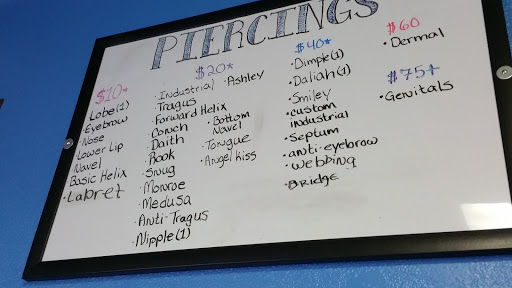 PIERCINGS
$10*
Lobe(1)
Eyebrow
Nose
Lower Lip
Navel
Basic Helix
Labret
$20*
Industrial
Tragus
Forward Helix
Conch
Daith
Rook
Snug
Monroe
Medusa
Anti-Tragus
Nipple(1)
Ashley
Bottom
Navel
Tongue
Angel kiss
$40*
Dimple(1)
Daliah(1)
Smiley
custom
industrial
Septum
anti-eyebrow
webbing
BRidge
$60
Dermal
$75+
Genitals